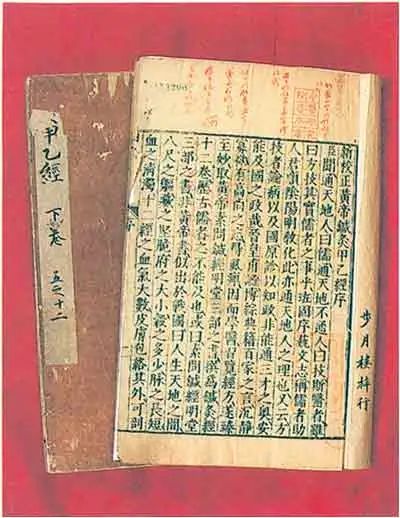 步月樓梓行
新校正黃帝鍼灸甲乙經序
臣聞通天地人曰儒通天地不通人曰技斯醫者雖
曰方技其實儒者之事乎班固序藝文志稱儒者助
人君順陰陽明教化此亦通天地人之理也又云方
技者論病以及國原診以知政非能通三才之奧安
能及國之政哉晉皇甫謐博綜典籍百家之言沉靜
寡慾有高尚之志得風痹因而學醫習覽經方遂臻
至妙取黃帝素問鍼經明堂三部之書撰為鍼灸經
十二卷歷古儒者之不能及也或曰素問鍼經明堂
三部之書非黃帝書似出於戰國曰人生天地之間
八尺之軀藏之堅脆府之大小穀之多少脉之長短
血之清濁十二經之血氣大數皮膚包絡其外可剖
甲乙經 下卷 五之十二